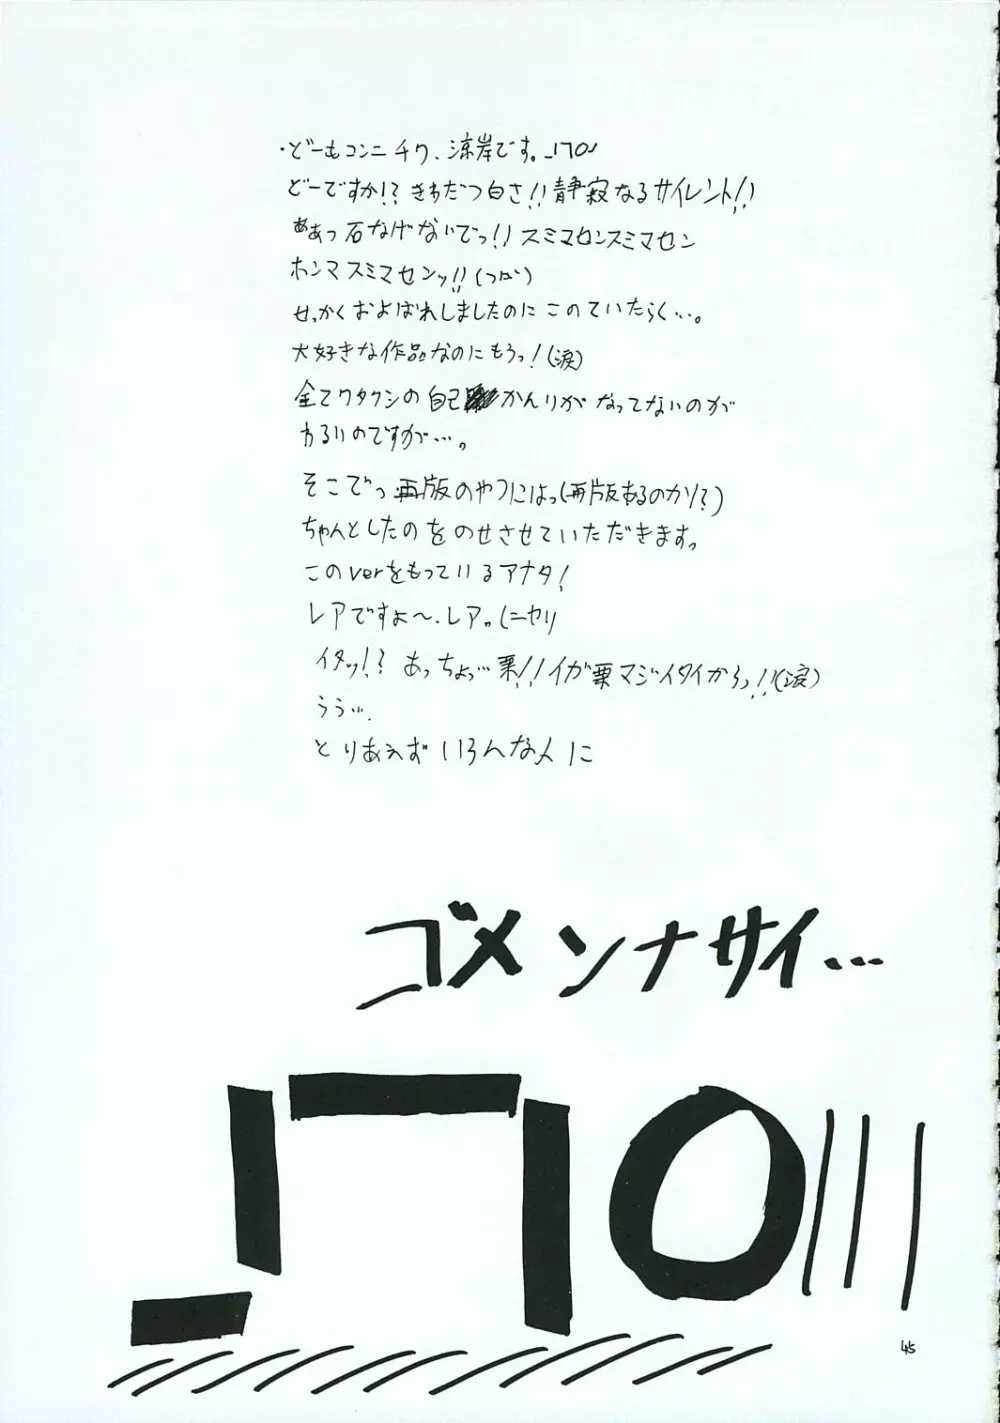 ・どーもコンニチワ、涼岸です。_| ̄|○
どーですか!? きわだつ白さ!! 静寂なるサイレント!!
ああっ石なげないでっ!! スミマセンスミマセン
ホンマスミマセンッ!!(つд`)
せっかくおよばれしましたのにこのていたらく…。
大好きな作品なのにもうっ!(涙)
全てワタクシの自己かんりがなってないのが
わるいのですが…。
そこでっ再版のやつにはっ(再版あるのか!?)
ちゃんとしたのをのせさせていただきますっ
このverをもっているアナタ!
レアですよ〜、レア。(ニヤリ
イタッ!? あっちょっ…栗!! イガ栗マジイタイからっ!!(涙)
ううっ…
とりあえずいろんな人に
ゴメンナサイ…
_| ̄|○|||
45